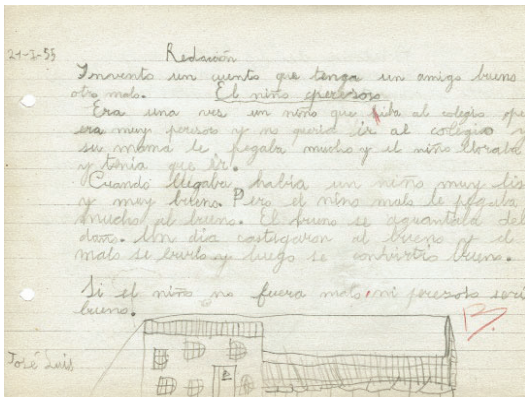 21-I-55
Redacción
Invento un cuento que tenga un amigo bueno
otro malo. El niño perezoso
Era una ves un niño que iba al colegio
era muy perezos y no queria ir al colegio
su mamá le pegaba mucho y el niño lloraba
y tenía que ir.
Cuando llegaba, había un niño muy lis
y muy bueno. Pero el nino malo le pegaba
mucho al bueno. El bueno se aguantria del
Un dia castigaron al bueno y el
malo se burló y luego se convirtió bueno.
Si el niño no fuera malo, ni perezoso serí
bueno.
B.
José Luis